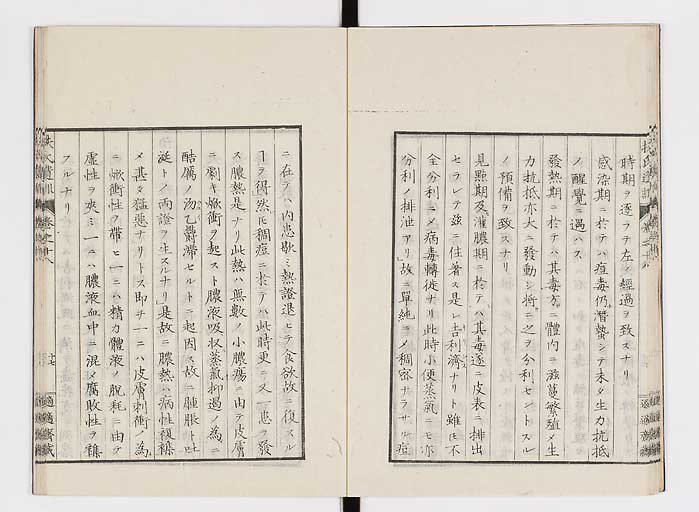 時期ヲ逐フテ左ノ經過ヲ致スナリ
感染期ニ於テハ痘毒仍潛蟄シテ未タ生力抵抗
ノ醒覺ニ遇ハス
發熱期ニ於テハ其毒方ニ體内ニ滋蔓繁殖メ生
力抗抵亦大ニ發動シ將ニ之ヲ分利セントスル
ノ預備ヲ致スナリ
見點期及灌膿期ニ於テハ其毒遂ニ皮表ニ排出
セラレテ茲ニ住著ス是レ吉利濟ナリト雖𪜈不
全分利ニメ病毒轉徙ナリ此時小便蒸氣ニモ亦
分利ノ排泄アリ故ニ單純ニメ稠密ナラサル痘
ニ在テハ内患歇ミ熱證退ヒテ食欲故ニ復スル
ヿヲ得然𪜈稠痘ニ於テハ此時更ニ又一患ヲ發
ス膿熱是ナリ此熱ハ無數ノ小膿瘍ニ由テ皮膚
ニ劇キ焮衝ヲ起スト膿液吸收蒸氣抑遏ノ爲ニ
酷厲ノ汚乙欝滯セルトニ起因ス故ニ腫脹ト吐
涎トノ兩證ヲ生スルナリ是故ニ膿熱ハ病性複雜
メ甚タ猛惡ナリトス即チ一ニハ皮膚刺衝ノ爲
ニ焮衝性ヲ帶ヒ一ニハ精力體液ノ脱耗ニ由テ
虚性ヲ夾ミ一ニハ膿液血中ニ混メ腐敗性ヲ雜
フルナリ
扶氏遺訓 卷之十八
適適齋藏